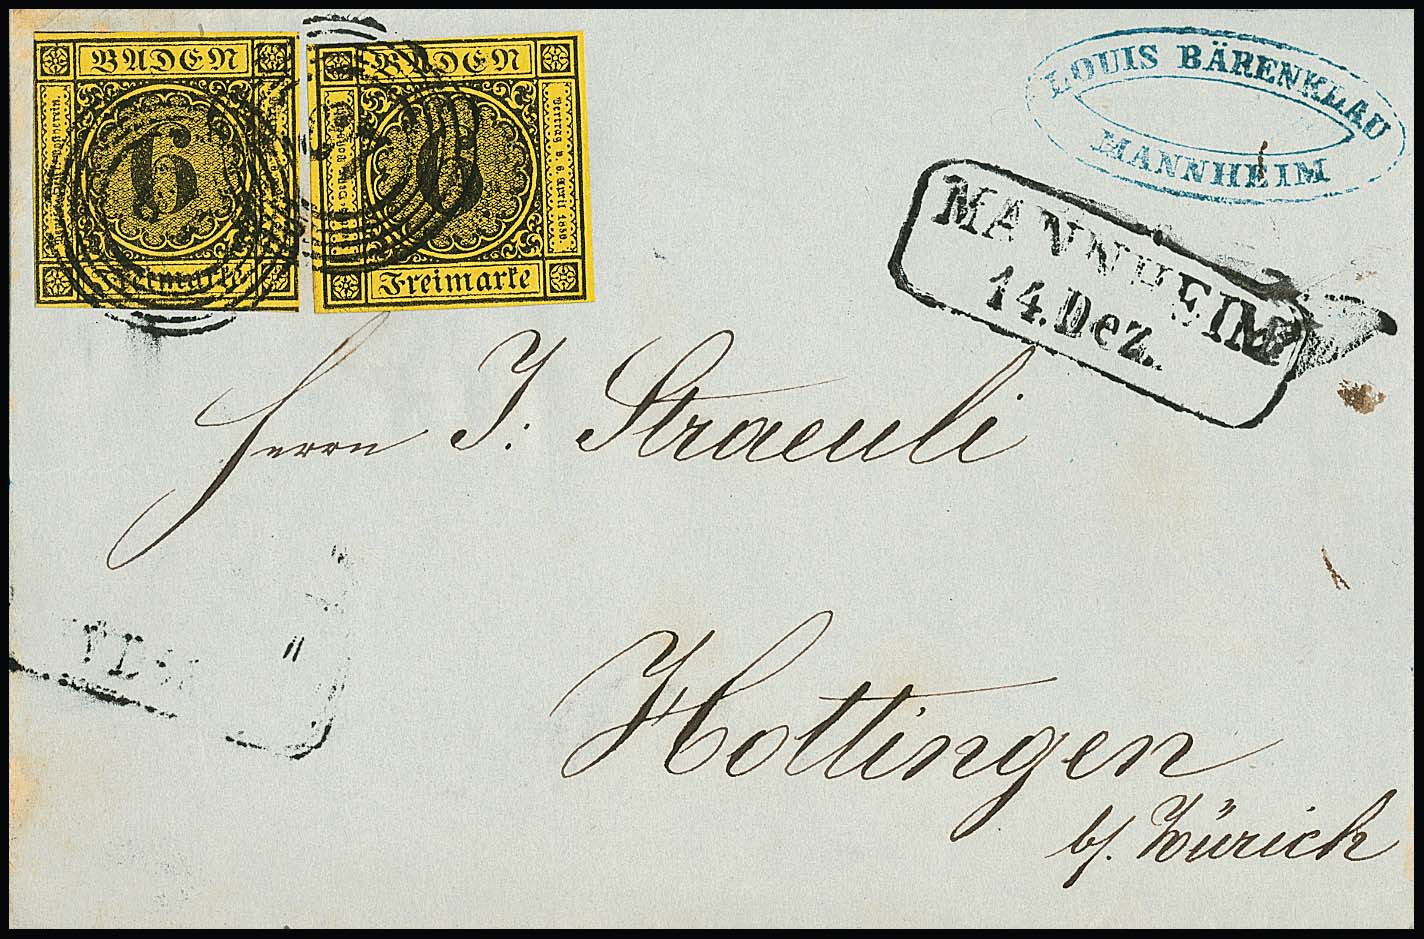 BADEN
6
Freimarke
BADEN
6
Vertrag v. 6 April 1850.
Freimarke
LOUIS BÄRENKLAU
MANNHEIM
MANNHEIM
14. Dez.
Herrn J: Straeuli
Hottingen
b/. Zürich